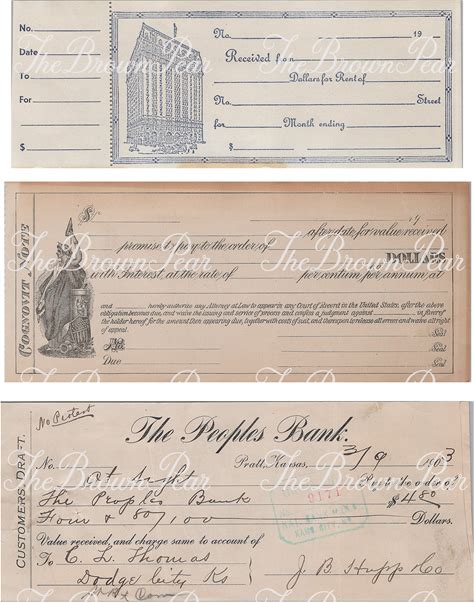 No.
Date
To
For
$
No. 19
Received from
Dollars for Rent of
No. Street
for Month ending
$
TheBrownPear
COGNOVIT NOTE
$ 19
after date for value received
promise to pay to the order of
DOLLARS
with interest, at the rate of per centum, per annum, at
TheBrownPear
and hereby authorize any Attorney at Law to appear in any Court of Record in the United States, after the above
obligation becomes due, and waive the issuing and service of process and confess a judgment against in favor of
the holder hereof for the amount then appearing due, together with costs of suit, and thereupon to release all errors and waive all right
of appeal. Seal
No. Seal
Due Seal
TheBrownPear
No Protest
CUSTOMERS DRAFT.
The Peoples Bank.
Pratt, Kansas, 3/9 1903
No. At sight Pay to the order of
The Peoples Bank $4.80
Four & 80/100 Dollars.
2171
Value received, and charge same to account of
To C. L. Thomas
Dodge City Ks J. B. Hupp Co
TheBrownPear